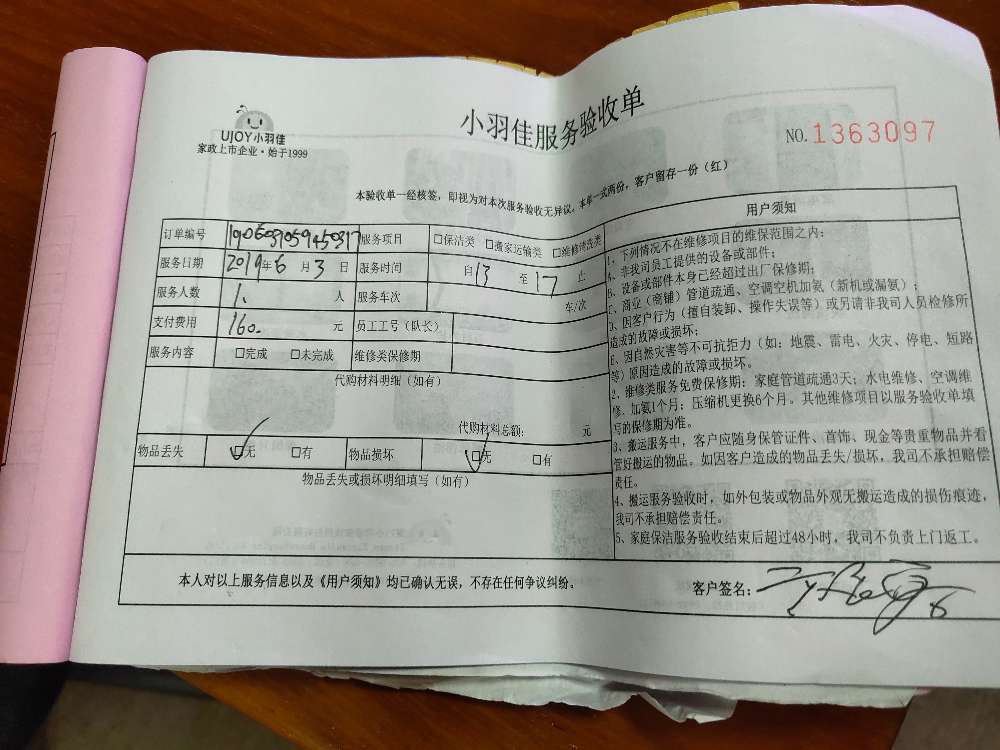 UJOY小羽佳
家政上市企业·始于1999
小羽佳服务验收单
NO.1363097
本验收单一经核签,即视为对本次服务验收无异议。本单一式两份,客户留存一份(红)
订单编号 服务项目 □保洁类 □搬家运输类 □维修清洗类
服务日期 2019年6月3日 服务时间 自13至17止
服务人数 1.人 服务车次 车/次
支付费用 160.元 员工工号(队长)
服务内容 □完成 □未完成 维修类保修期
代购材料明细(如有)
代购材料总额: 元
物品丢失 □无 □有 物品损坏 □无 □有
物品丢失或损坏明细填写(如有)
用户须知
1、下列情况不在维修项目的维保范围之内:
A、非我司员工提供的设备或部件;
B、设备或部件本身已经超过出厂保修期;
C、商业(商铺)管道疏通、空调空机加氨(新机或漏氨);
D、因客户行为(擅自装卸、操作失误等)或另请非我司人员检修所
造成的故障或损坏;
E、因自然灾害等不可抗拒力(如:地震、雷电、火灾、停电、短路
等)原因造成的故障或损坏。
2、维修类服务免费保修期:家庭管道疏通3天;水电维修、空调维
修、加氨1个月;压缩机更换6个月。其他维修项目以服务验收单填
写的保修期为准。
3、搬运服务中,客户应随身保管证件、首饰、现金等贵重物品并看
管好搬运的物品。如因客户造成的物品丢失/损坏,我司不承担赔偿
责任。
4、搬运服务验收时,如外包装或物品外观无搬运造成的损伤痕迹,
我司不承担赔偿责任。
5、家庭保洁服务验收结束后超过48小时,我司不负责上门返工。
本人对以上服务信息以及《用户须知》均已确认无误,不存在任何争议纠纷。
客户签名: